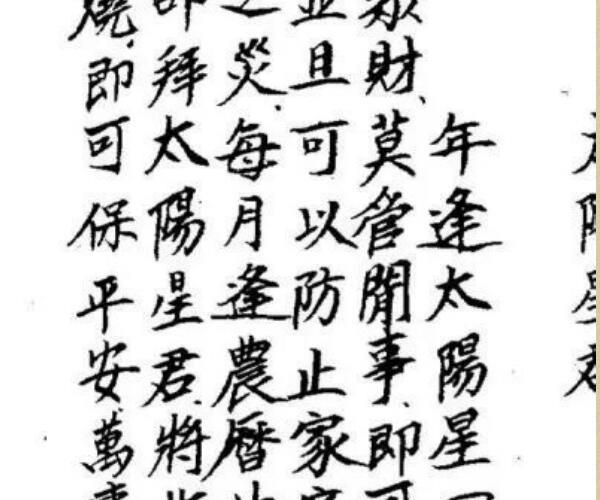 太陽星君
年逢太陽星
財、莫管閒事、即可
並且可以防止家
之災、每月逢農曆
即拜太陽星君、將
燒、即可保平安萬事